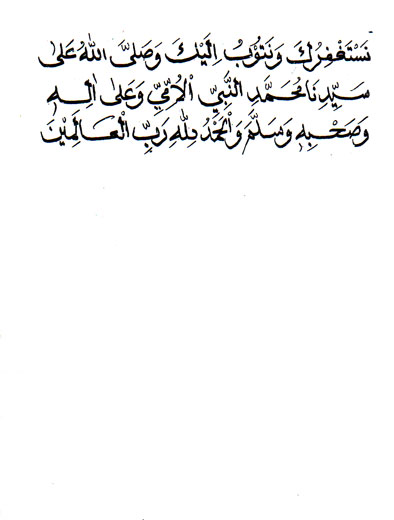 نَسْتَغْفِرُكَ وَنَتُوْبُ اِلَيْكَ وَصَلَّى اللهُ عَلَى
سَيِّدِنَا مُحَمَّدِ النَّبِيِّ الْاُمِّيِّ وَعَلَى اٰلِهِ
وَصَحْبِهِ وَسَلَّمَ وَالْحَمْدُ لِلّٰهِ رَبِّ الْعَالَمِيْنَ